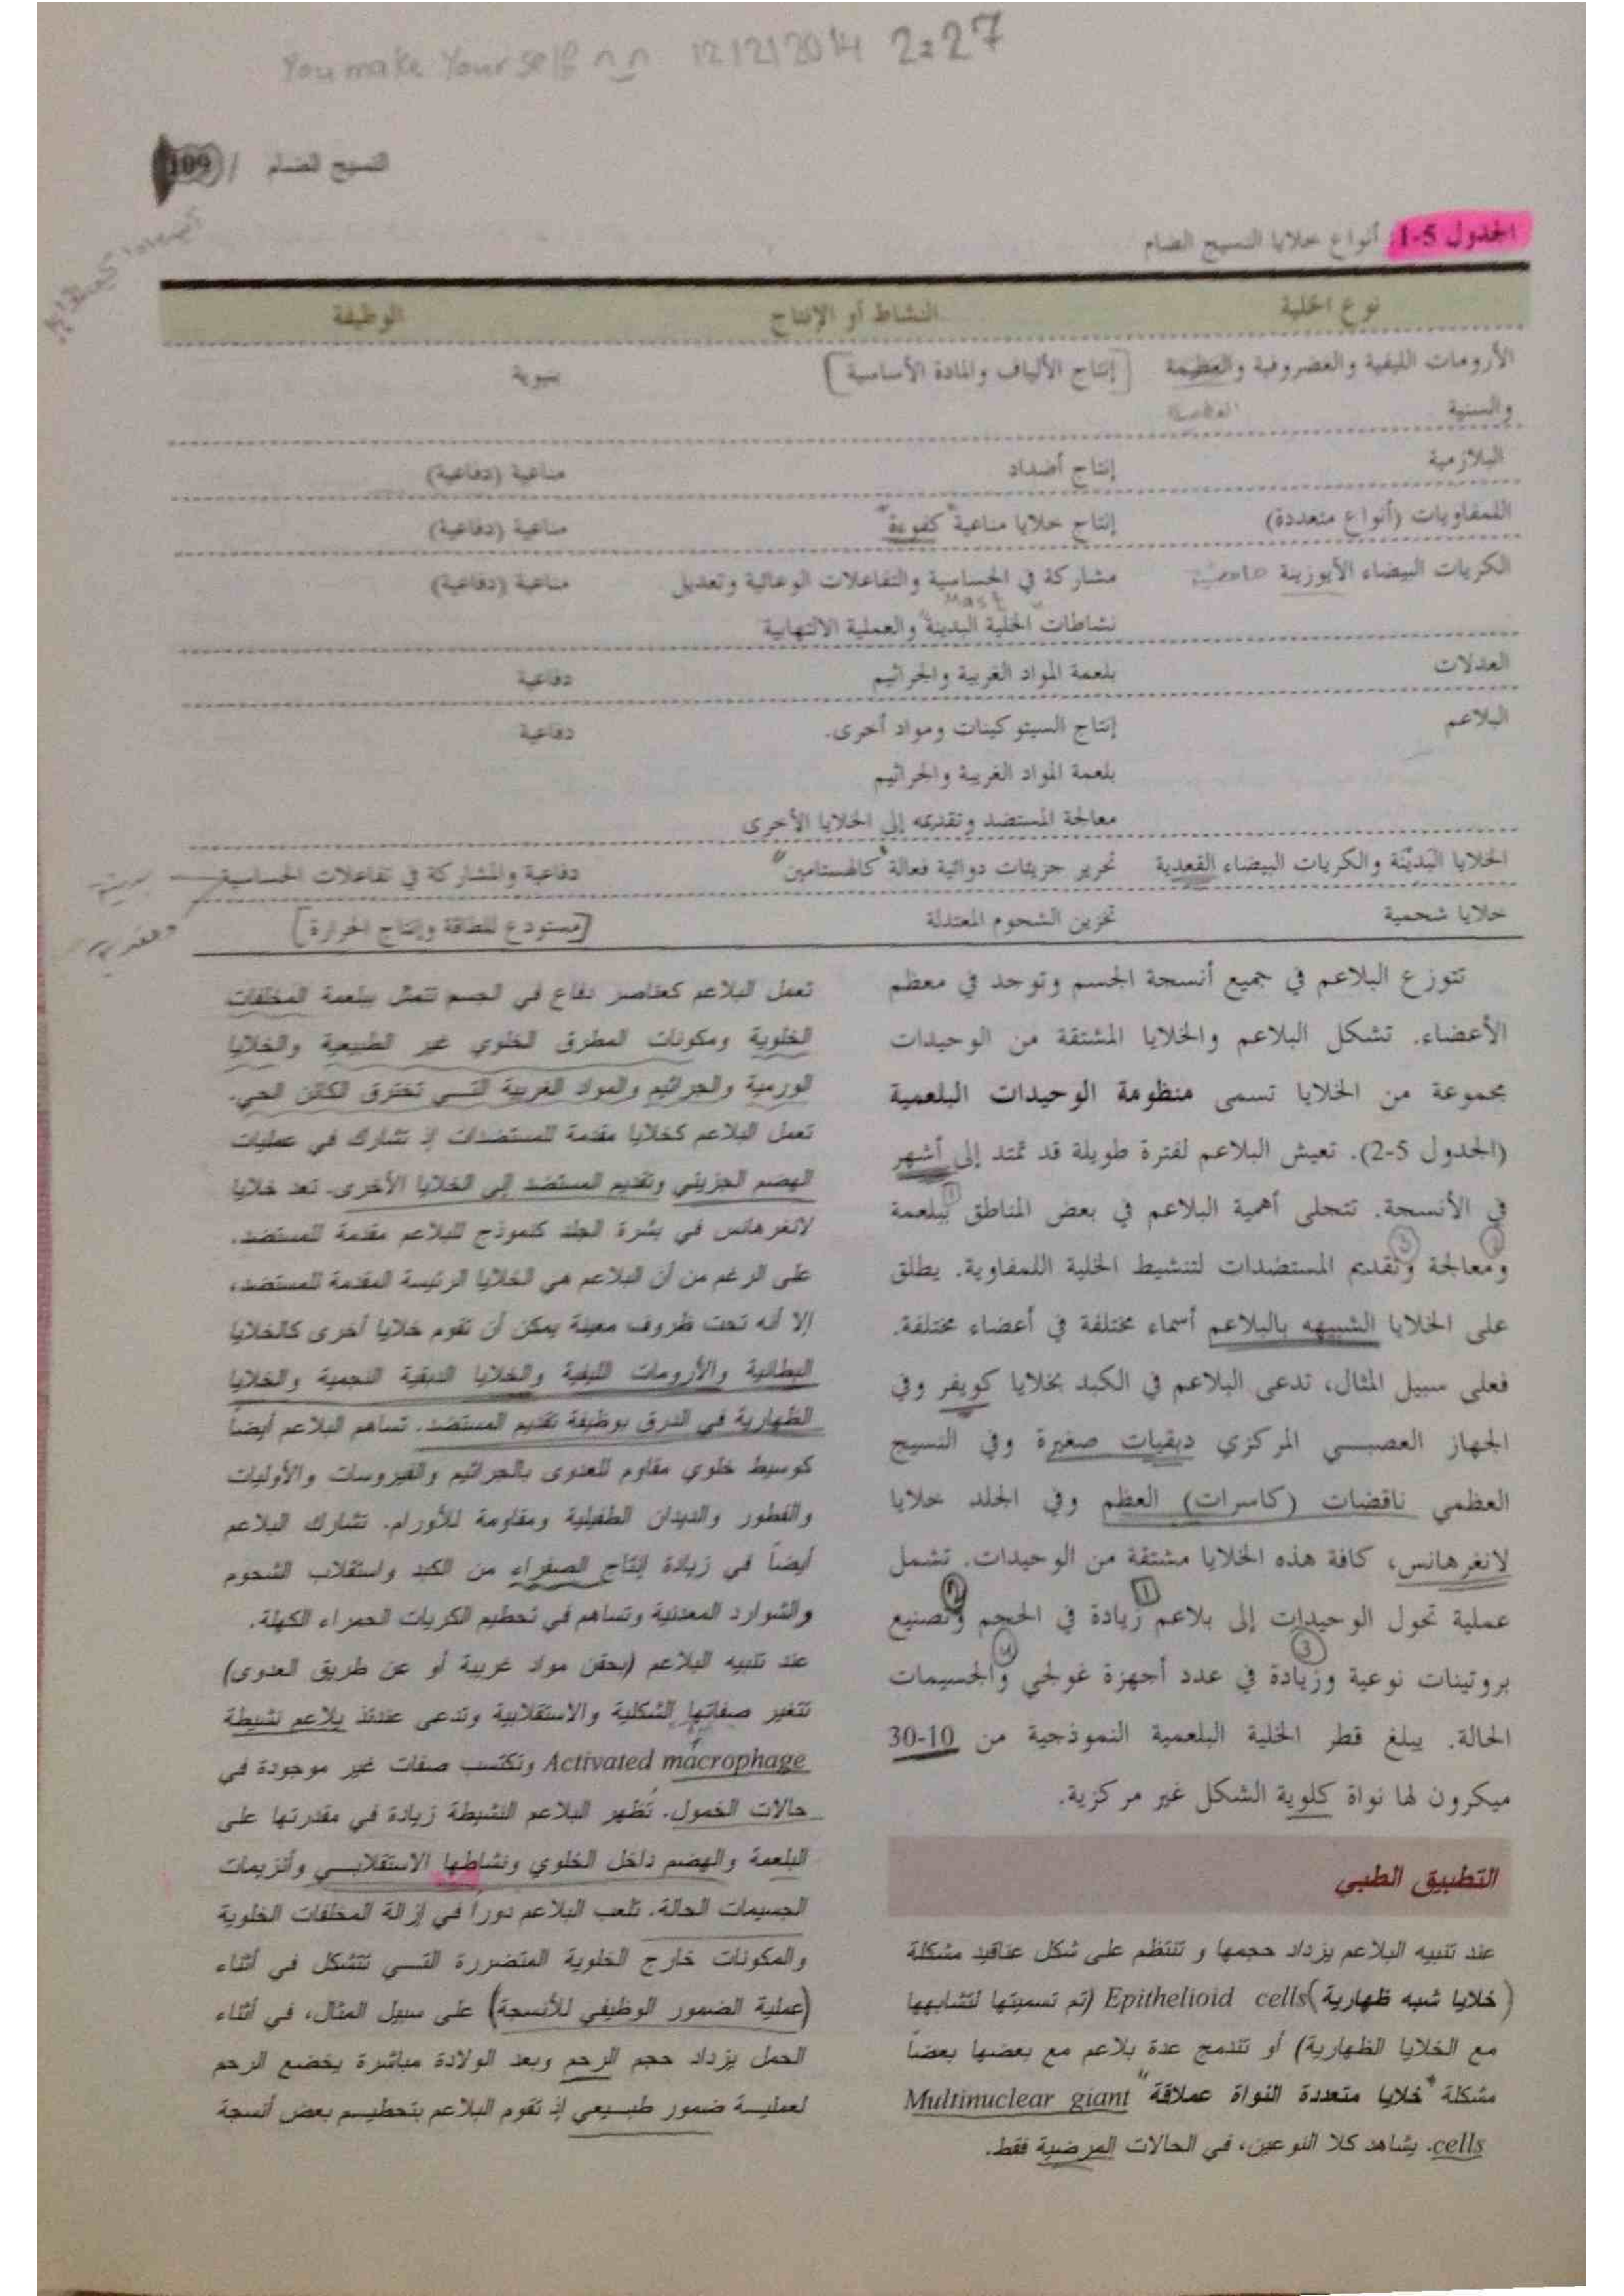 You make Yourself 12/2/2014 2:27
النسيج الضام / 109
الجدول 5-1: أنواع خلايا النسيج الضام
نوع الخلية النشاط أو الإنتاج الوظيفة
الأرومات الليفية والغضروفية والعظمية [إنتاج الألياف والمادة الأساسية] بنيوية
والسنية
البلازمية إنتاج أضداد مناعية (دفاعية)
اللمفاويات (أنواع متعددة) إنتاج خلايا مناعية "كفوءة" مناعية (دفاعية)
الكريات البيضاء الأيوزينية مشاركة في الحساسية والتفاعلات الوعائية وتعديل مناعية (دفاعية)
Mast
نشاطات الخلية البدينة والعملية الالتهابية
العدلات بلعمة المواد الغريبة والجراثيم دفاعية
البلاعم إنتاج السيتوكينات ومواد أخرى. دفاعية
بلعمة المواد الغريبة والجراثيم
معالجة المستضد وتقديمه إلى الخلايا الأخرى
الخلايا البدينة والكريات البيضاء القعدية تحرير جزيئات دوائية فعالة "كالهستامين" دفاعية والمشاركة في تفاعلات الحساسية
خلايا شحمية تخزين الشحوم المعتدلة [مستودع للطاقة وإنتاج الحرارة]
تتوزع البلاعم في جميع أنسجة الجسم وتوجد في معظم
الأعضاء. تشكل البلاعم والخلايا المشتقة من الوحيدات
مجموعة من الخلايا تسمى منظومة الوحيدات البلعمية
(الجدول 5-2). تعيش البلاعم لفترة طويلة قد تمتد إلى أشهر
في الأنسجة. تتجلى أهمية البلاعم في بعض المناطق ببلعمة
ومعالجة وتقديم المستضدات لتنشيط الخلية اللمفاوية. يطلق
على الخلايا الشبيهه بالبلاعم أسماء مختلفة في أعضاء مختلفة.
فعلى سبيل المثال، تدعى البلاعم في الكبد بخلايا كويفر وفي
الجهاز العصبي المركزي دبقيات صغيرة وفي النسيج
العظمي ناقضات (كاسرات) العظم وفي الجلد خلايا
لانغرهانس، كافة هذه الخلايا مشتقة من الوحيدات. تشمل
عملية تحول الوحيدات إلى بلاعم زيادة في الحجم وتصنيع
بروتينات نوعية وزيادة في عدد أجهزة غولجي والجسيمات
الحالة. يبلغ قطر الخلية البلعمية النموذجية من 10-30
ميكرون لها نواة كلوية الشكل غير مركزية.
التطبيق الطبي
عند تنبيه البلاعم يزداد حجمها و تنتظم على شكل عناقيد مشكلة
(خلايا شبه ظهارية) Epithelioid cells (تم تسميتها لتشابهها
مع الخلايا الظهارية) أو تندمج عدة بلاعم مع بعضها بعضاً
مشكلة "خلايا متعددة النواة عملاقة" Multinuclear giant
cells. يشاهد كلا النوعين، في الحالات المرضية فقط.
تعمل البلاعم كعناصر دفاع في الجسم تتمثل ببلعمة المخلفات
الخلوية ومكونات المطرق الخلوي غير الطبيعية والخلايا
الورمية والجراثيم والمواد الغريبة التي تخترق الكائن الحي.
تعمل البلاعم كخلايا مقدمة للمستضدات إذ تشارك في عمليات
الهضم الجزيئي وتقديم المستضد إلى الخلايا الأخرى. تعد خلايا
لانغرهانس في بشرة الجلد كنموذج للبلاعم مقدمة للمستضد.
على الرغم من أن البلاعم هي الخلايا الرئيسة المقدمة للمستضد،
إلا أنه تحت ظروف معينة يمكن أن تقوم خلايا أخرى كالخلايا
البطانية والأرومات الليفية والخلايا الدبقية النجمية والخلايا
الظهارية في الدرق بوظيفة تقديم المستضد. تساهم البلاعم أيضاً
كوسيط خلوي مقاوم للعدوى بالجراثيم والفيروسات والأوليات
والفطور والديدان الطفيلية ومقاومة للأورام. تشارك البلاعم
أيضاً في زيادة إنتاج الصفراء من الكبد واستقلاب الشحوم
والشوارد المعدنية وتساهم في تحطيم الكريات الحمراء الكهلة.
عند تنبيه البلاعم (بحقن مواد غريبة أو عن طريق العدوى)
تتغير صفاتها الشكلية والاستقلابية وتدعى عندئذ بلاعم نشيطة
Activated macrophage وتكتسب صفات غير موجودة في
حالات الخمول. تظهر البلاعم النشيطة زيادة في مقدرتها على
البلعمة والهضم داخل الخلوي ونشاطها الاستقلابي وأنزيمات
الجسيمات الحالة. تلعب البلاعم دوراً في إزالة المخلفات الخلوية
والمكونات خارج الخلوية المتضررة التي تتشكل في أثناء
(عملية الضمور الوظيفي للأنسجة) على سبيل المثال، في أثناء
الحمل يزداد حجم الرحم وبعد الولادة مباشرة يخضع الرحم
لعملية ضمور طبيعي إذ تقوم البلاعم بتحطيم بعض أنسجة